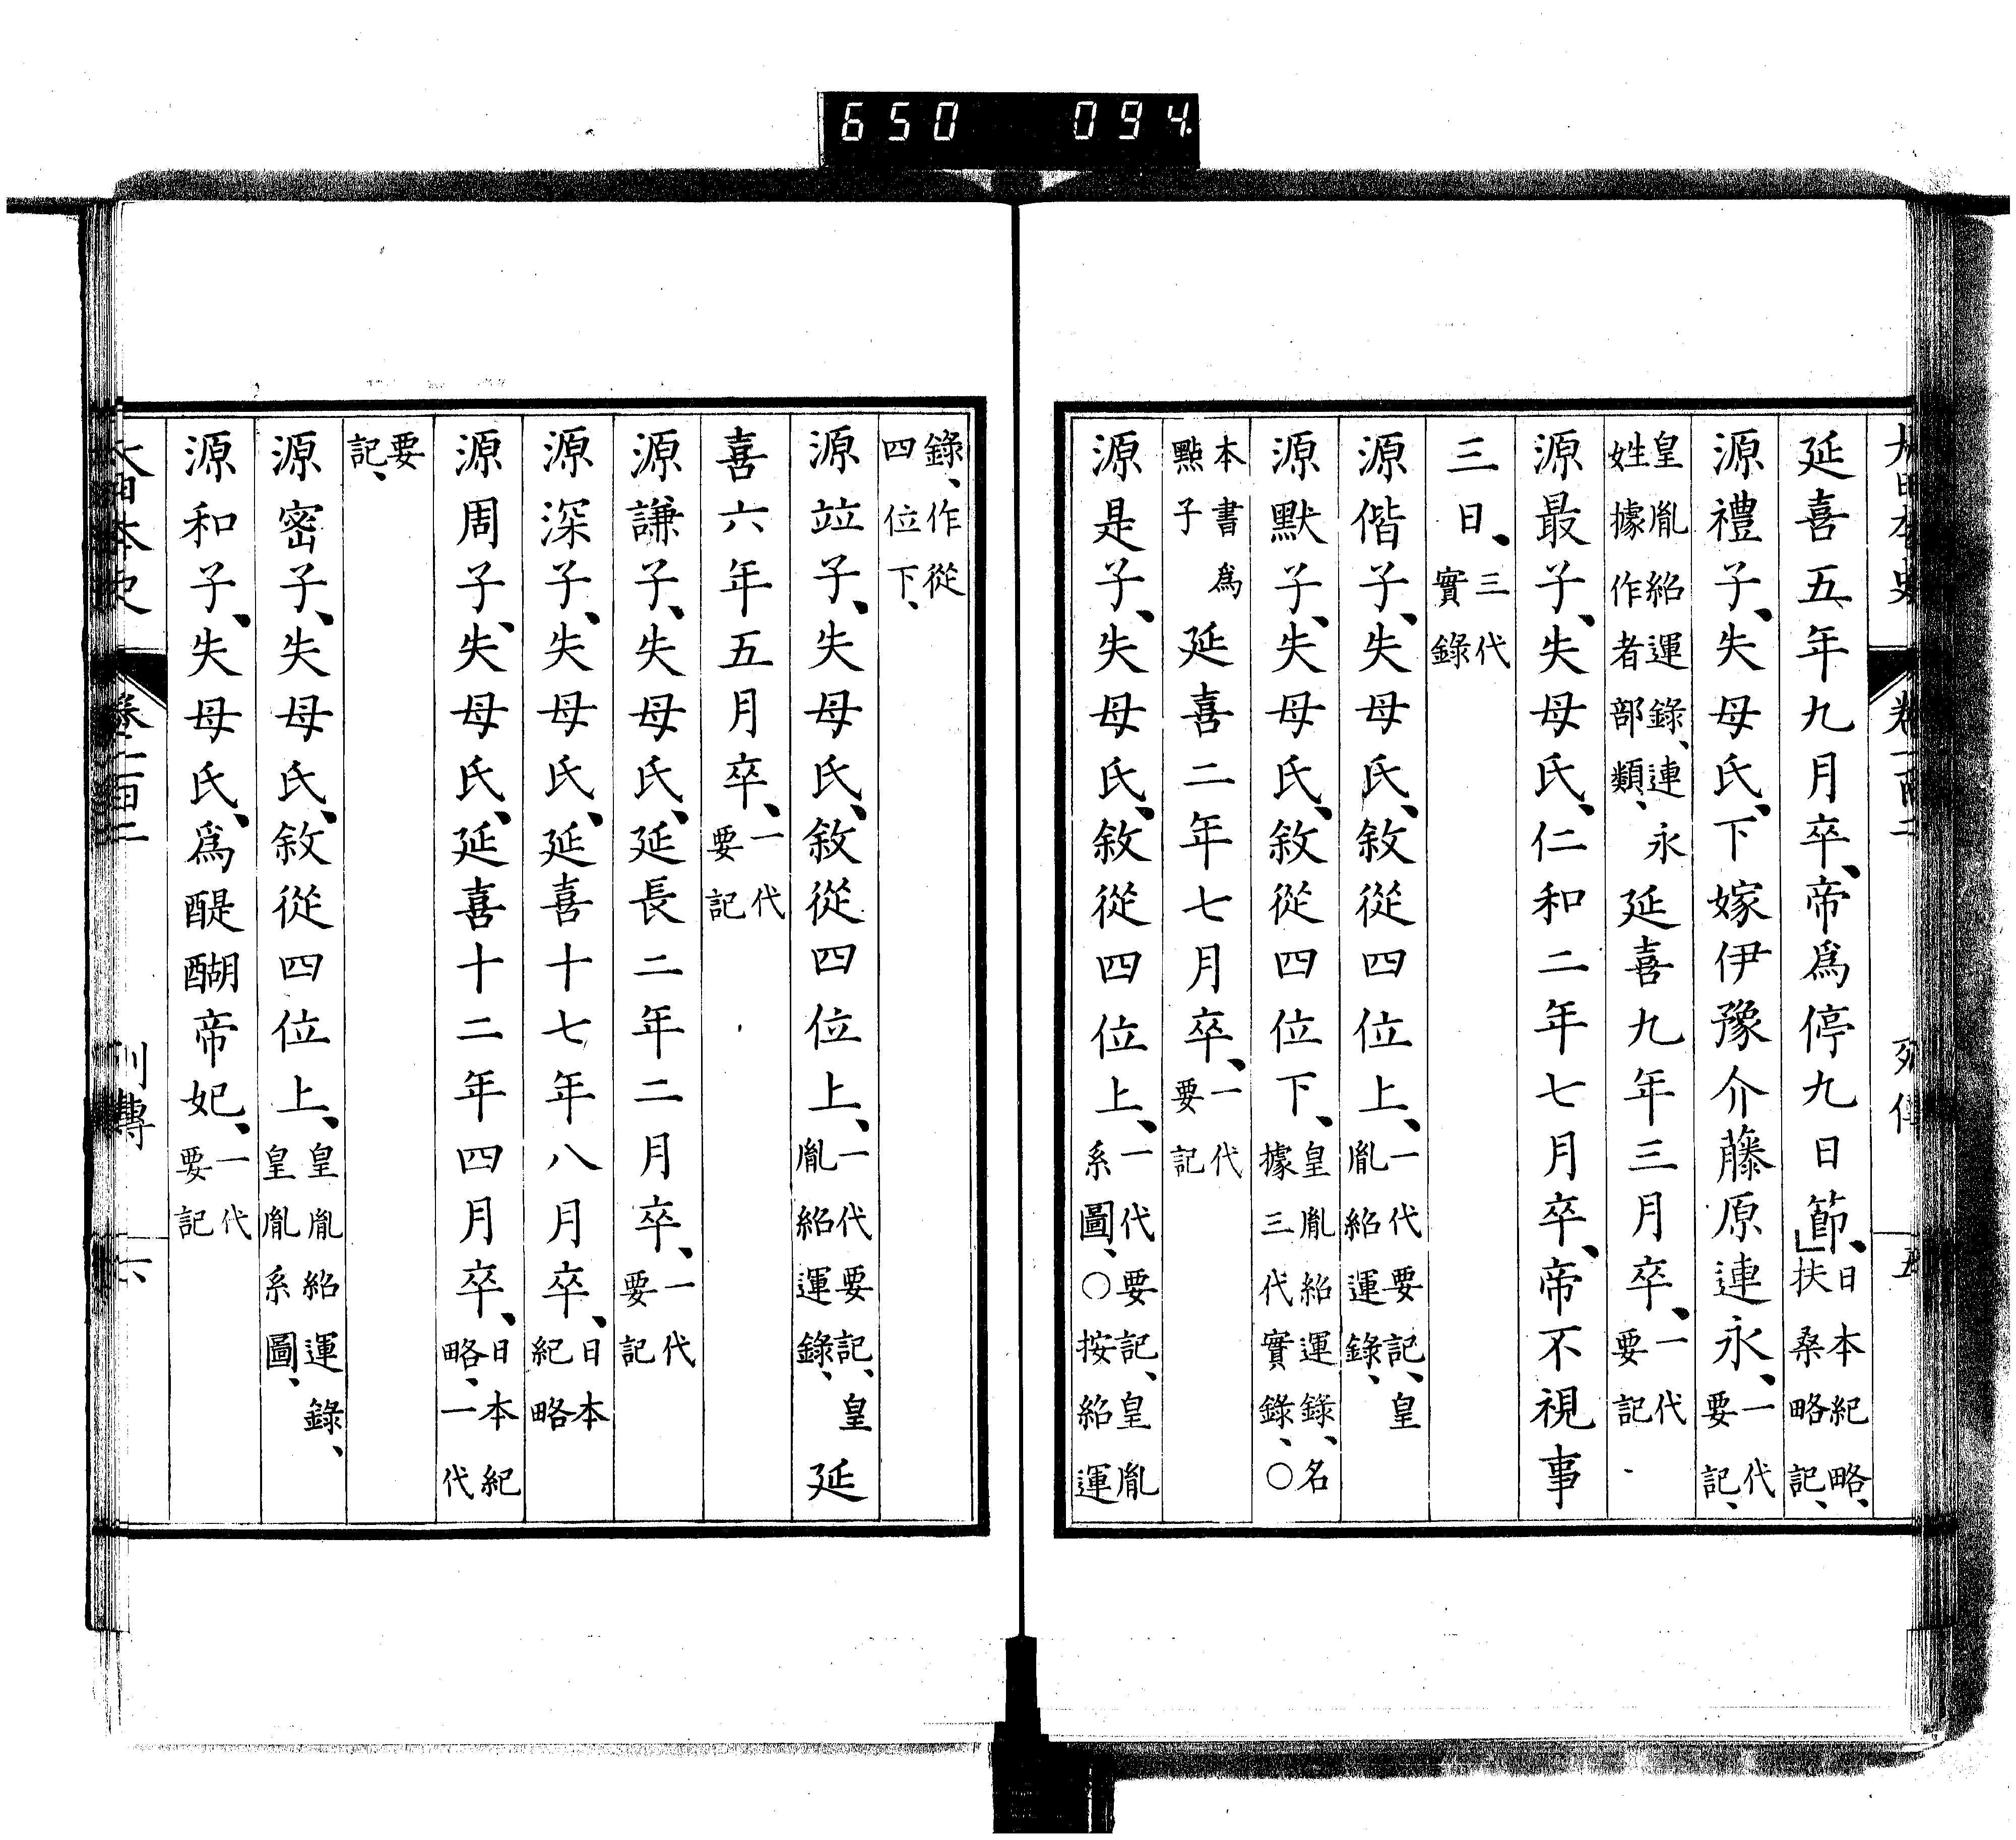 650 094
大日本史 卷一百二 列傳 五
延喜五年九月卒、帝爲停九日節、日本紀略、扶桑略記、
源禮子、失母氏、下嫁伊豫介藤原連永、一代要記、
皇胤紹運錄、連永姓據作者部類、延喜九年三月卒、一代要記
源最子、失母氏、仁和二年七月卒、帝不視事
三日、三代實錄
源偕子、失母氏、敘從四位上、一代要記、皇胤紹運錄、
源默子、失母氏、敘從四位下、皇胤紹運錄、名據三代實錄、○
本書爲點子延喜二年七月卒、一代要記
源是子、失母氏、敘從四位上、一代要記、皇胤系圖、○按紹運
錄、作從四位下、
源竝子、失母氏、敘從四位上、一代要記、皇胤紹運錄、延
喜六年五月卒、一代要記
源謙子、失母氏、延長二年二月卒、一代要記
源深子、失母氏、延喜十七年八月卒、日本紀略
源周子、失母氏、延喜十二年四月卒、日本紀略、一代
要記、
源密子、失母氏、敘從四位上、皇胤紹運錄、皇胤系圖、
源和子、失母氏、爲醍醐帝妃、一代要記
大日本史 卷一百二 列傳 六